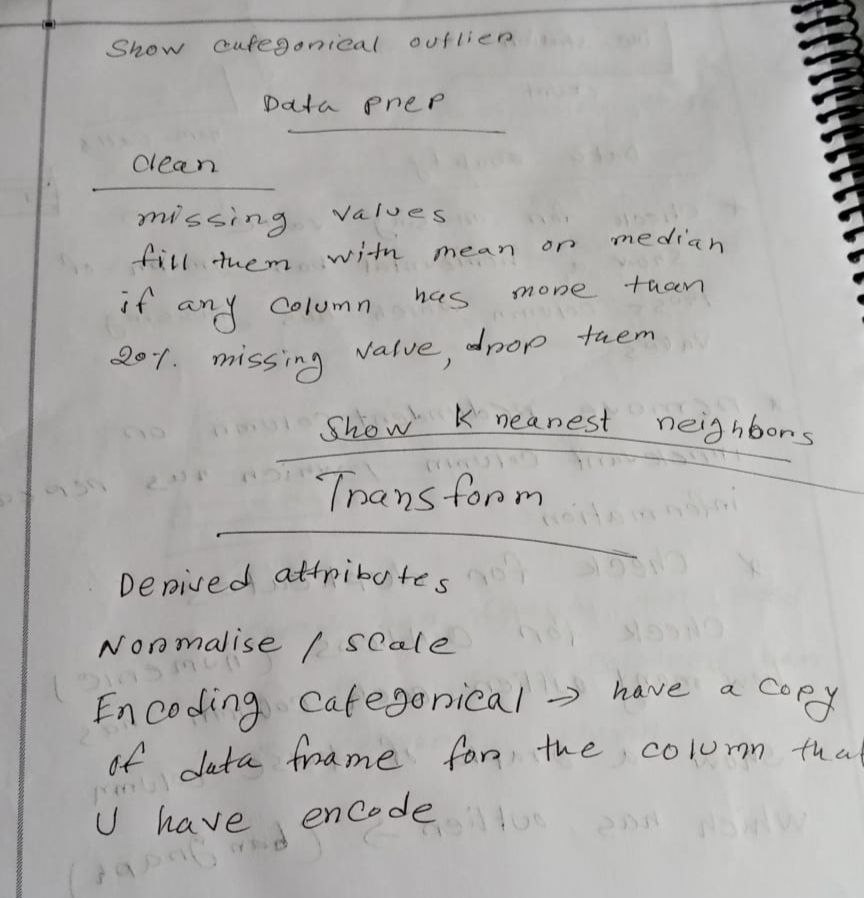 Show categorical outlier
Data prep
Clean
missing values
fill them with mean or median
if any column has more than
20%. missing value, drop them
Show K nearest neighbors
Transform
Derived attributes
Normalise / scale
Encoding Categorical → have a copy
of data frame for the column that
U have encode